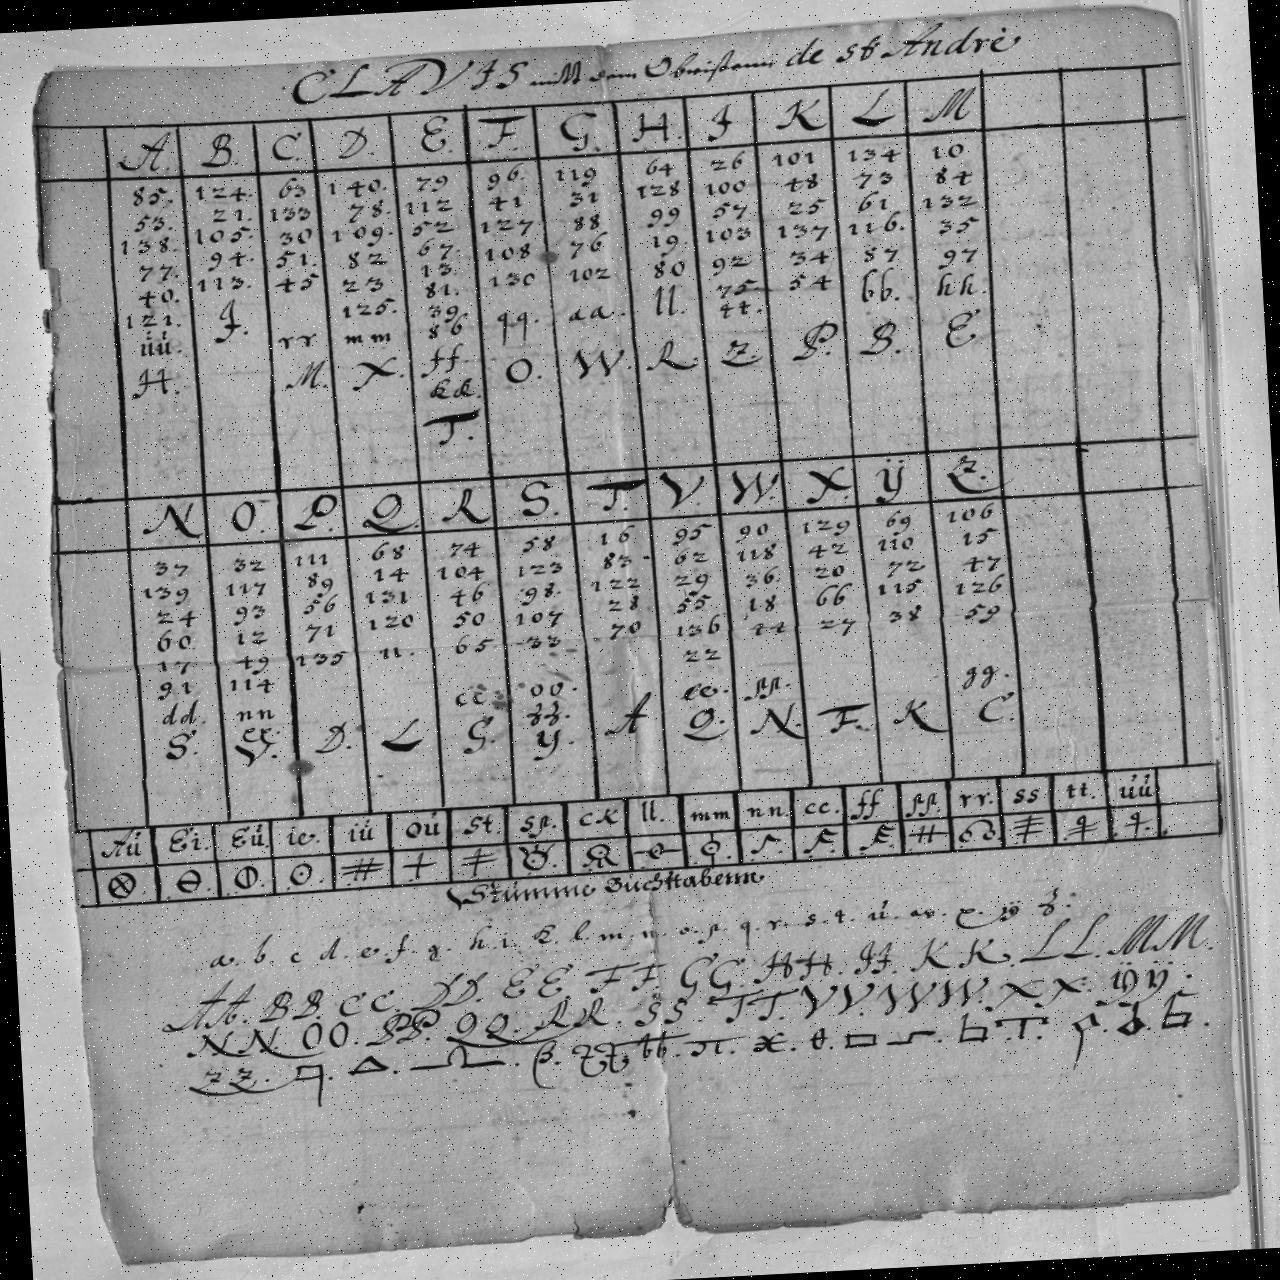 CLAVIS mitt dem Obristenn de St André
A. B. C. D. E. F. G. H. J. K L M
85. 124. 63 140. 79 96. 119 64 26 101 134 10
53. 21. 133 78. 112 41 31 128 100 48 73 84
138. 105. 30 109. 52 127 88 99 57 25 61 132
77. 94. 51. 82 67. 108 76 19. 103 137 116. 35
40. 113. 45 23 13. 130 102 80 92 34 87 97
121. J. 125. 81. qq. aa. ll. 75 54 bb. hh.
üü. rr mm 39 tt.
H. M. X. 86 O. W. R Z. P. B. E
ff.
kk.
T.
N O. P. Q. R S. T. V. W. X. ÿ Z.
37 32 111 68 74 58 16 95 90 129 69 106
139 117 89 14 104 123 83 62 118 42 110 15
24 93 56 131 46 98. 122 29 36. 20 72 47
60 12 71 120 50 107 28 55 18 66 115 126
17 49 135 ii. 65 33 70 136 44 27 38 59
91 114 22
dd. nn cc. oo. ee. pp. gg.
S. V. D. L G. zz. A Q. N. F. K C.
y.
Aü Ei. Eü. ie. iü oü St. Sp. cK ll. mm nn. cc. ff pp. rr. ss tt. üü
Stumme Buchstabenn
a. b. c d. e. f. g. h. i. k l. m. n. o. p. q. r. s. t. ü. w. x. ÿ z.
AA. BB. CC. DD. EE. FF GG. HH. JJ. KK. LL. MM.
NN. OO. PP. QQ. RR. SS TT. VV. WW. XX. ÿÿ.
ZZ.